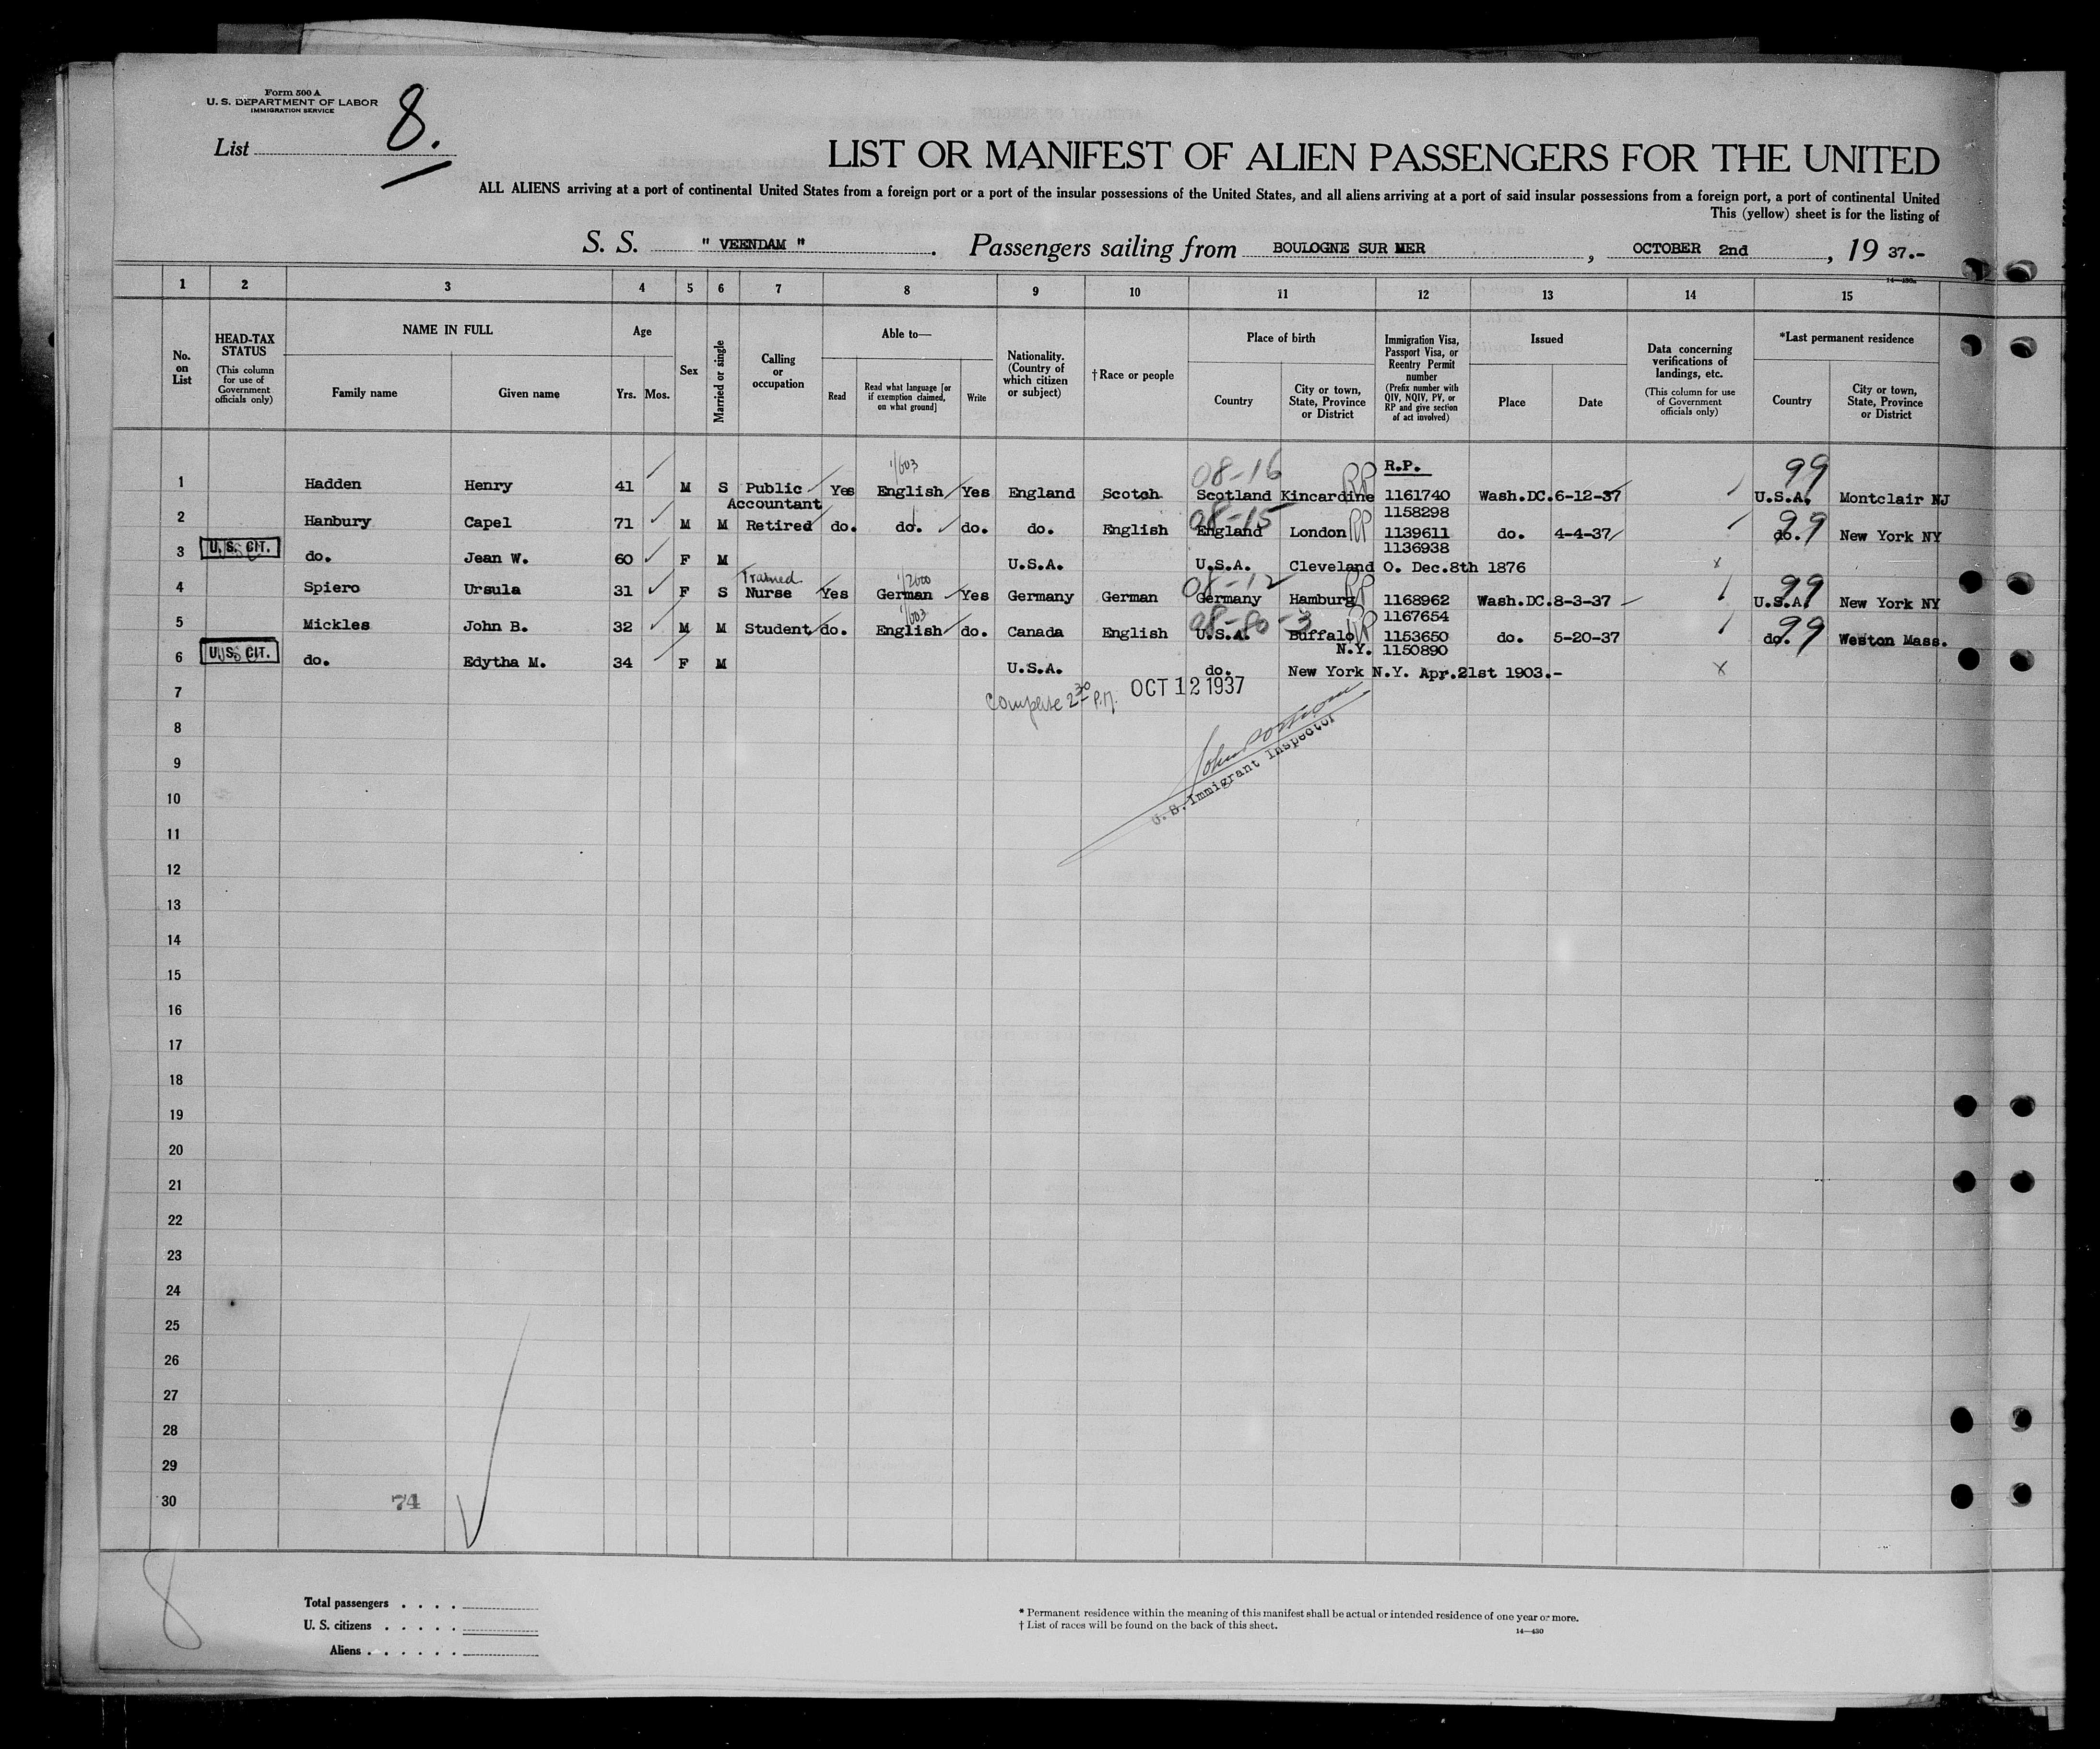 Form 500 A
U. S. DEPARTMENT OF LABOR
IMMIGRATION SERVICE
List 8.
LIST OR MANIFEST OF ALIEN PASSENGERS FOR THE UNITED
ALL ALIENS arriving at a port of continental United States from a foreign port or a port of the insular possessions of the United States, and all aliens arriving at a port of said insular possessions from a foreign port, a port of continental United
This (yellow) sheet is for the listing of
S. S. " VEENDAM ". Passengers sailing from BOULOGNE SUR MER, OCTOBER 2nd, 19 37.-
14—430a
1 2 3 4 5 6 7 8 9 10 11 12 13 14 15
No. on List
HEAD-TAX STATUS (This column for use of Government officials only)
NAME IN FULL
Family name Given name
Age
Yrs. Mos.
Sex
Married or single
Calling or occupation
Able to—
Read
Read what language [or if exemption claimed, on what ground]
Write
Nationality. (Country of which citizen or subject)
†Race or people
Place of birth
Country
City or town, State, Province or District
Immigration Visa, Passport Visa, or Reentry Permit number (Prefix number with QIV, NQIV, PV, or RP and give section of act involved)
Issued
Place Date
Data concerning verifications of landings, etc. (This column for use of Government officials only)
*Last permanent residence
Country
City or town, State, Province or District
1/603 08-16 RP R.P. 99
1 Hadden Henry 41 M S Public Accountant Yes English Yes England Scotch Scotland Kincardine 1161740 Wash.DC. 6-12-37 U.S.A. Montclair NJ
1158298
08-15 RP 99
2 Hanbury Capel 71 M M Retired do. do. do. do. English England London 1139611 do. 4-4-37 do. New York NY
1136938
3 U.S. CIT. do. Jean W. 60 F M U.S.A. U.S.A. Cleveland O. Dec.8th 1876 x
Trained 1/2000 08-12 RP 99
4 Spiero Ursula 31 F S Nurse Yes German Yes Germany German Germany Hamburg 1168962 Wash.DC. 8-3-37 U.S.A. New York NY
1167654
1/603 08-80-3 RP 99
5 Mickles John B. 32 M M Student do. English do. Canada English U.S.A. Buffalo N.Y. 1153650 do. 5-20-37 do. Weston Mass.
1150890
6 U.S. CIT. do. Edytha M. 34 F M U.S.A. do. New York N.Y. Apr.21st 1903.- x
7 2 30 P.M. OCT 12 1937
8
John
U. S. Immigrant Inspector
9
10
11
12
13
14
15
16
17
18
19
20
21
22
23
24
25
26
27
28
29
30
74
8
Total passengers . . . .
U. S. citizens . . . . .
Aliens . . . . . .
* Permanent residence within the meaning of this manifest shall be actual or intended residence of one year or more.
† List of races will be found on the back of this sheet.
14—430